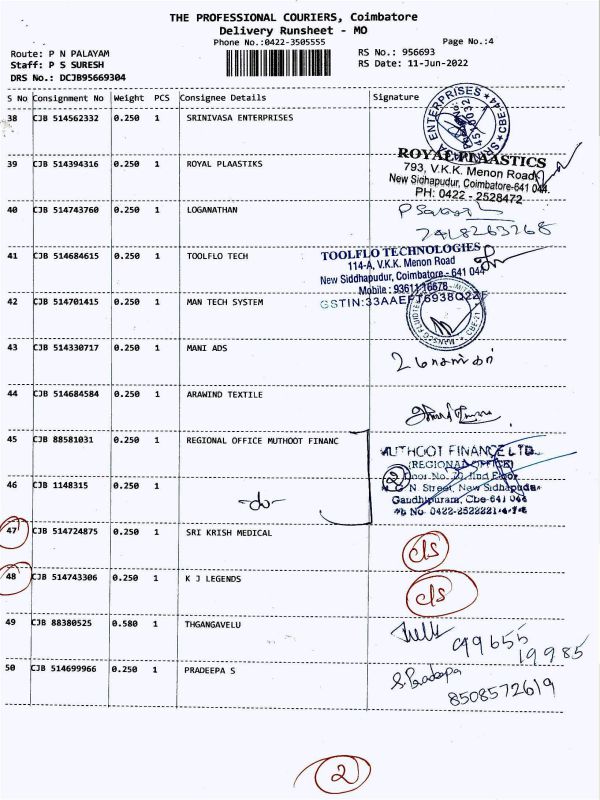 THE PROFESSIONAL COURIERS, Coimbatore
Delivery Runsheet - MO
Phone No.:0422-3505555
Page No.:4
Route: P N PALAYAM
RS No.: 956693
Staff: P S SURESH
RS Date: 11-Jun-2022
DRS No.: DCJB95669304
S No Consignment No Weight PCS Consignee Details Signature
38 CJB 514562332 0.250 1 SRINIVASA ENTERPRISES
39 CJB 514394316 0.250 1 ROYAL PLAASTIKS
ROYAL PLAASTICS
793, V.K.K. Menon Road,
New Sidhapudur, Coimbatore-641 044.
PH: 0422 - 2528472
40 CJB 514743760 0.250 1 LOGANATHAN
7418263268
41 CJB 514684615 0.250 1 TOOLFLO TECH
TOOLFLO TECHNOLOGIES
114-A, V.K.K. Menon Road
New Siddhapudur, Coimbatore - 641 044
Mobile : 93611 16678
42 CJB 514701415 0.250 1 MAN TECH SYSTEM
43 CJB 514330717 0.250 1 MANI ADS
44 CJB 514684584 0.250 1 ARAWIND TEXTILE
45 CJB 88581031 0.250 1 REGIONAL OFFICE MUTHOOT FINANC
MUTHOOT FINANCE LTD.
(REGIONAL OFFICE)
46 CJB 1148315 0.250 1 -do-
N Street, New Sidhapudur
Gandhipuram, Cbe-641 044
47 CJB 514724875 0.250 1 SRI KRISH MEDICAL c/s
48 CJB 514743306 0.250 1 K J LEGENDS c/s
49 CJB 88380525 0.580 1 THGANGAVELU
99655
19985
50 CJB 514699966 0.250 1 PRADEEPA S
S. Pradeepa
8508572619
2